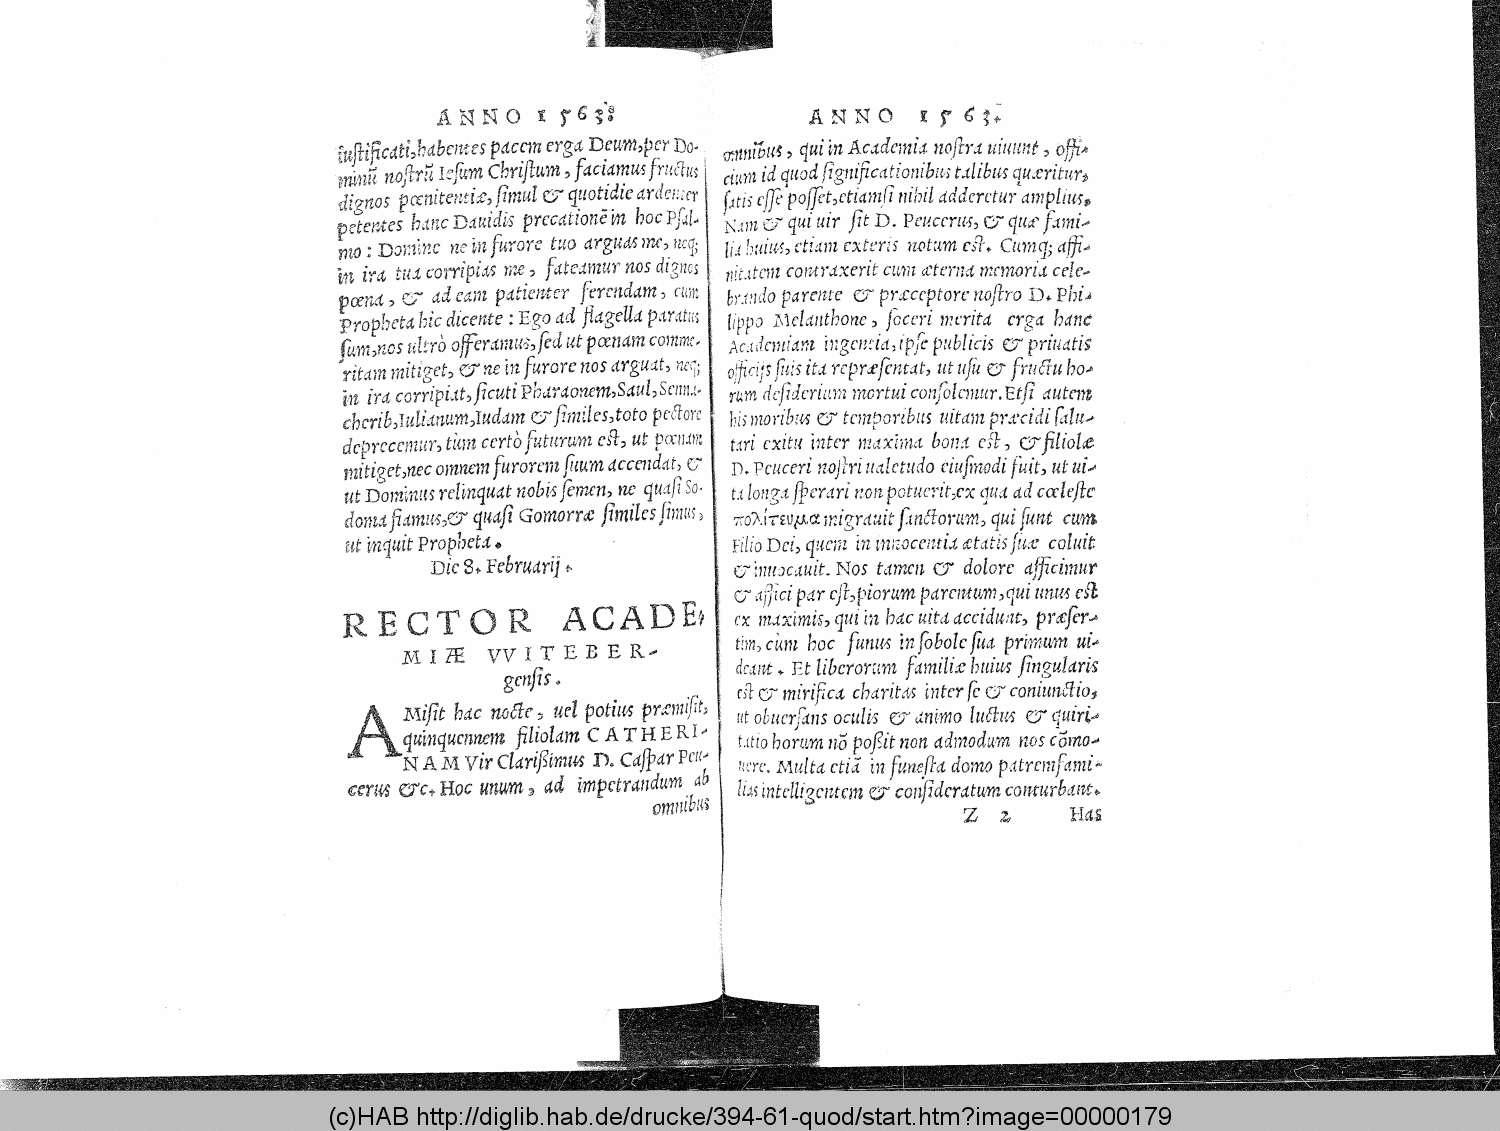 ANNO 1563.
iuſtificati, habentes pacem erga Deum, per Do-
minū noſtrū Ieſum Chriſtum, faciamus fructus
dignos pœnitentiæ, ſimul & quotidie ardenter
petentes hanc Dauidis precationē in hoc Pſal-
mo: Domine ne in furore tuo arguas me, neq;
in ira tua corripias me, fateamur nos dignos
pœna, & ad eam patienter ferendam, cum
Propheta hic dicente: Ego ad flagella paratus
ſum, nos ultrò offeramus, ſed ut pœnam comme-
ritam mitiget, & ne in furore nos arguat, neq;
in ira corripiat, ſicuti Pharaonem, Saul, Senna-
cherib, Iulianum, Iudam & ſimiles, toto pectore
deprecemur, tùm certò futurum eſt, ut pœnam
mitiget, nec omnem furorem ſuum accendat, &
ut Dominus relinquat nobis ſemen, ne quaſi So-
doma fiamus, & quaſi Gomorræ ſimiles ſimus,
ut inquit Propheta.
Die 8. Februarij.
RECTOR ACADE-
MIÆ VVITEBER-
genſis.
AMiſit hac nocte, uel potius præmiſit,
quinquennem filiolam CATHERI-
NAM Vir Clarißimus D. Caſpar Peu-
cerus &c. Hoc unum, ad impetrandum ab
omnibus
ANNO 1563.
omnibus, qui in Academia noſtra uiuunt, offi-
cium id quod ſignificationibus talibus quæritur,
ſatis eſſe poſſet, etiamſi nihil adderetur amplius,
Nam & qui uir ſit D. Peucerus, & quæ fami-
lia huius, etiam exteris notum eſt. Cumq; affi-
nitatem contraxerit cum æterna memoria cele-
brando parente & præceptore noſtro D. Phi-
lippo Melanthone, ſoceri merita erga hanc
Academiam ingentia, ipſe publicis & priuatis
officijs ſuis ita repræſentat, ut uſu & fructu ho-
rum deſiderium mortui conſolemur. Etſi autem
his moribus & temporibus uitam præcidi ſalu-
tari exitu inter maxima bona eſt, & filiolæ
D. Peuceri noſtri ualetudo eiuſmodi fuit, ut ui-
ta longa ſperari non potuerit, ex qua ad cœleſte
πολίτευμα migrauit ſanctorum, qui ſunt cum
Filio Dei, quem in innocentia ætatis ſuæ coluit
& inuocauit. Nos tamen & dolore afficimur
& affici par eſt, piorum parentum, qui unus eſt
ex maximis, qui in hac uita accidunt, præſer-
tim, cùm hoc funus in ſobole ſua primum ui-
deant. Et liberorum familiæ huius ſingularis
eſt & mirifica charitas inter ſe & coniunctio,
ut obuerſans oculis & animo luctus & quiri-
tatio horum nō poßit non admodum nos cōmo-
uere. Multa etiā in funeſta domo patremfami-
lias intelligentem & conſideratum conturbant.
Z 2 Has
(c)HAB http://diglib.hab.de/drucke/394-61-quod/start.htm?image=00000179